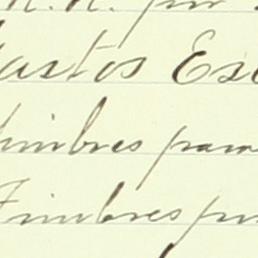 por
Gastos Es
Timbres para
Timbres pa